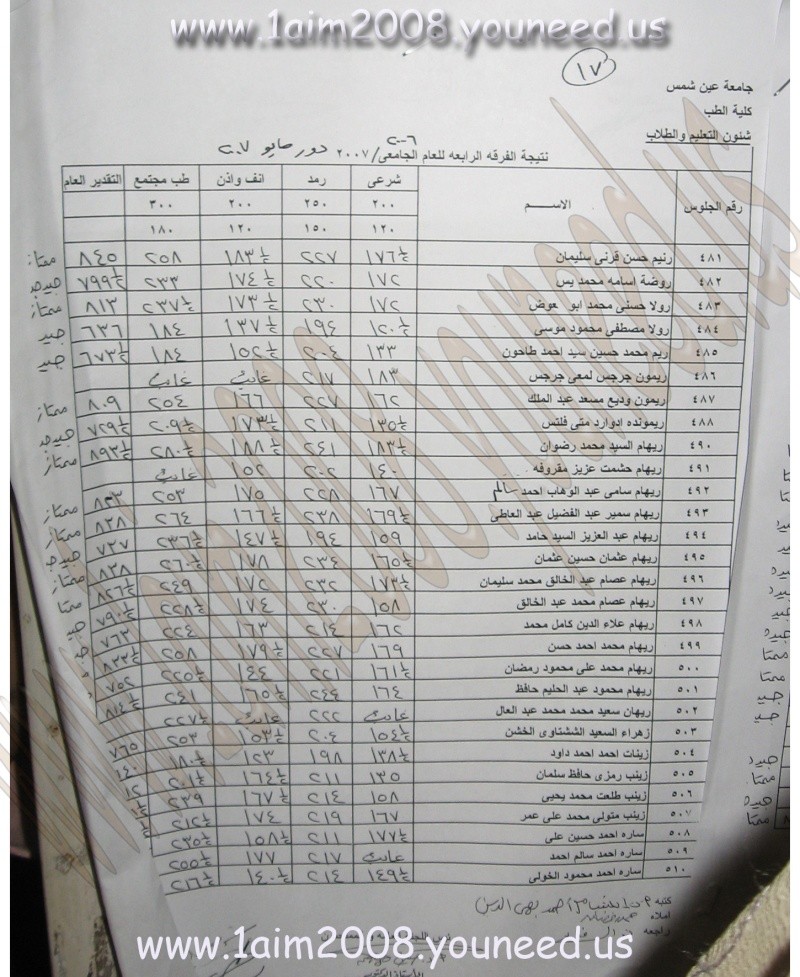 www.1aim2008.youneed.us
١٧
جامعة عين شمس
كلية الطب
شئون التعليم والطلاب
نتيجة الفرقه الرابعه للعام الجامعى ٢٠٠٦/ ٢٠٠٧ دور مايو ٢٠٠٧
رقم الجلوس الاســـم شرعى رمد انف واذن طب مجتمع التقدير العام
٢٠٠ ٢٥٠ ٢٠٠ ٣٠٠
١٢٠ ١٥٠ ١٢٠ ١٨٠
٤٨١ رنيم حسن قرنى سليمان ١٧٦½ ٢٢٧ ١٨٣½ ٢٥٨ ٨٤٥ ممتاز
٤٨٢ روضة اسامه محمد يس ١٧٢ ٢٢٠ ١٧٤½ ٢٣٣ ٧٩٩½
٤٨٣ رولا حسنى محمد ابو عوض ١٧٢ ٢٣٠ ١٧٣½ ٢٣٧½ ٨١٣ ممتاز
٤٨٤ رولا مصطفى محمود موسى ١٢٠½ ١٩٤ ١٣٧½ ١٨٤ ٦٣٦ جيد
٤٨٥ ريم محمد حسين سيد احمد طاحون ١٣٣ ٢٠٤ ١٥٢½ ١٨٤ ٦٧٣½ جيد
٤٨٦ ريمون جرجس لمعى جرجس ١٨٣ ٢١٧ غائب غائب
٤٨٧ ريمون وديع مسعد عبد الملك ١٦٢ ٢٢٧ ١٦٦ ٢٥٤ ٨٠٩ ممتاز
٤٨٨ ريمونده ادوارد متى فلتس ١٣٥½ ٢١١ ١٧٣½ ٢٠٩½ ٧٢٩½
٤٩٠ ريهام السيد محمد رضوان ١٨٣½ ٢٤١ ١٨٨½ ٢٨٠½ ٨٩٣½ ممتاز
٤٩١ ريهام حشمت عزيز مقروفه ١٤٠ ٢٠٢ ١٥٢ غائب
٤٩٢ ريهام سامى عبد الوهاب احمد سالم ١٦٧ ٢٢٨ ١٧٥ ٢٥٣ ٨٢٣ ممتاز
٤٩٣ ريهام سمير عبد الفضيل عبد العاطى ١٦٩½ ٢٣٨ ١٦٦½ ٢٦٤ ٨٣٨ ممتاز
٤٩٤ ريهام عبد العزيز السيد حامد ١٥٩ ١٩٤ ١٤٧½ ٢٣٦½ ٧٣٧
٤٩٥ ريهام عثمان حسين عثمان ١٦٥½ ٢٣٤ ١٧٨ ٢٦٠½ ٨٣٨ ممتاز
٤٩٦ ريهام عصام عبد الخالق محمد سليمان ١٧٣½ ٢٣٢ ١٧٢ ٢٤٩ ٨٢٦½
٤٩٧ ريهام عصام محمد عبد الخالق ١٥٨ ٢٣٠ ١٧٤ ٢٢٨½ ٧٩٠½
٤٩٨ ريهام علاء الدين كامل محمد ١٦٢ ٢١٤ ١٦٣ ٢٢٤ ٧٦٣
٤٩٩ ريهام محمد احمد حسن ١٦٩ ٢٢٧ ١٧٩½ ٢٥٨ ٨٣٣½
٥٠٠ ريهام محمد على محمود رمضان ١٦١½ ٢٢١ ١٤٤ ٢٢٥½ ٧٥٢
٥٠١ ريهام محمود عبد الحليم حافظ ١٦٤ ٢٤٤ ١٦٥½ ٢٤١ ٨١٤½
٥٠٢ ريهان سعيد محمد محمد عبد العال غائب ٢٢٢ غائب ٢٢٧½
٥٠٣ زهراء السعيد الششتاوى الخشن ١٥٤½ ٢٠٤ ١٥٣½ ٢٥٣ ٧٦٥
٥٠٤ زينات احمد احمد داود ١٣٨½ ١٩٨ ١٢٣
٥٠٥ زينب رمزى حافظ سلمان ١٣٥ ٢١١ ١٦٤½
٥٠٦ زينب طلعت محمد يحيى ١٥٨ ٢١٤ ١٦٧½ ٢٣٩
٥٠٧ زينب متولى محمد على عمر ١٦٧ ٢١٩ ١٧٤
٥٠٨ ساره احمد حسين على ١٧٧½ ٢١١ ١٥٨½ ٢٣٥½
٥٠٩ ساره احمد سالم احمد غائب ٢١٧ ١٧٧ ٢٥٥½
٥١٠ ساره احمد محمود الخولى ١٤٩½ ٢١٤ ١٤٠½ ٢١٦½
كتبه
املاه
راجعه
www.1aim2008.youneed.us